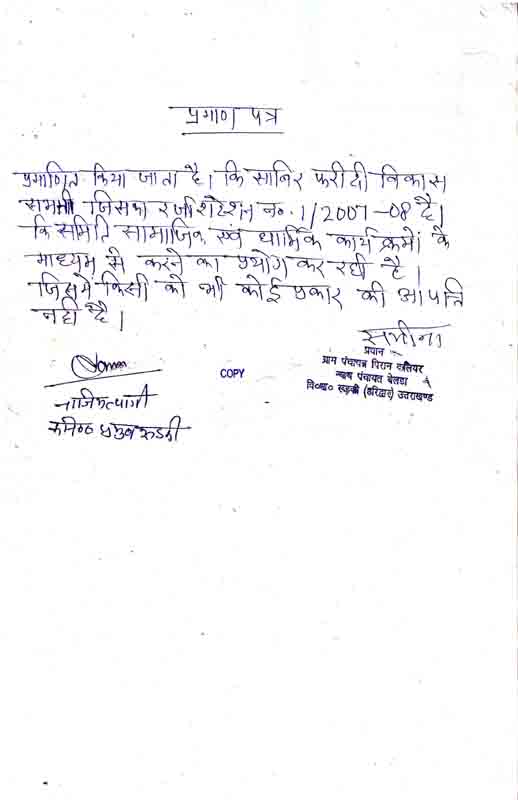 प्रमाण पत्र
प्रमाणित किया जाता है। कि साबिर फरीदी विकास
सममती जिसका रजीशटेशन नं०. 1/2007-08 है।
कि समिति सामाजिक एवं धार्मिक कार्य क्रमों के
माध्यम से करने का प्रयोग कर रही है।
जिसमें किसी को भी कोई प्रकार की आपत्ति
नही है।
प्रधान
ग्राम पंचायत पिरान कलियर
COPY
न्याय पंचायत बेलडा
वि०ख० रूड़की (हरिद्वार) उत्तराखण्ड
कनिष्ठ प्रमुख रूडकी